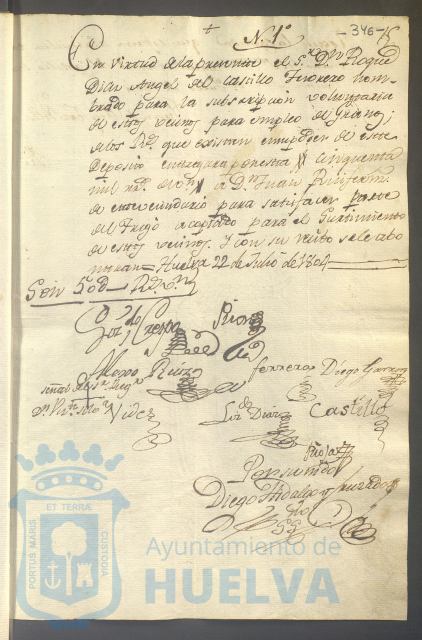 N.1º
-346-
En virtud de la prevencion el S.r D.n Roque
Diaz Angel del Castillo Thesorero nom-
brado para la subscripcion voluntaria
de estos vecinos para empleo de Granos;
de los R.s que existen en poder de este
Deposito entregara por esta cinquenta
mil rr.s de v.n a D.n Juan
de este vecindario para satisfacer parte
del Trigo acoptado para el Surtimiento
de estos vecinos. Y con su recibo se le abo
naran = Huelva 22 de Julio de 1804
Son 50d R.s v.n
Crespo
Rioja
Alonso Ruiz
ferrera
Diego Garrido
señal del S.r Reg.r
Videz
Liz.do Diaz
Castillo
Por su m.do
Diego Hidalgo
ET TERRÆ
PORTUS MARIS
CUSTODIA
Ayuntamiento de
HUELVA